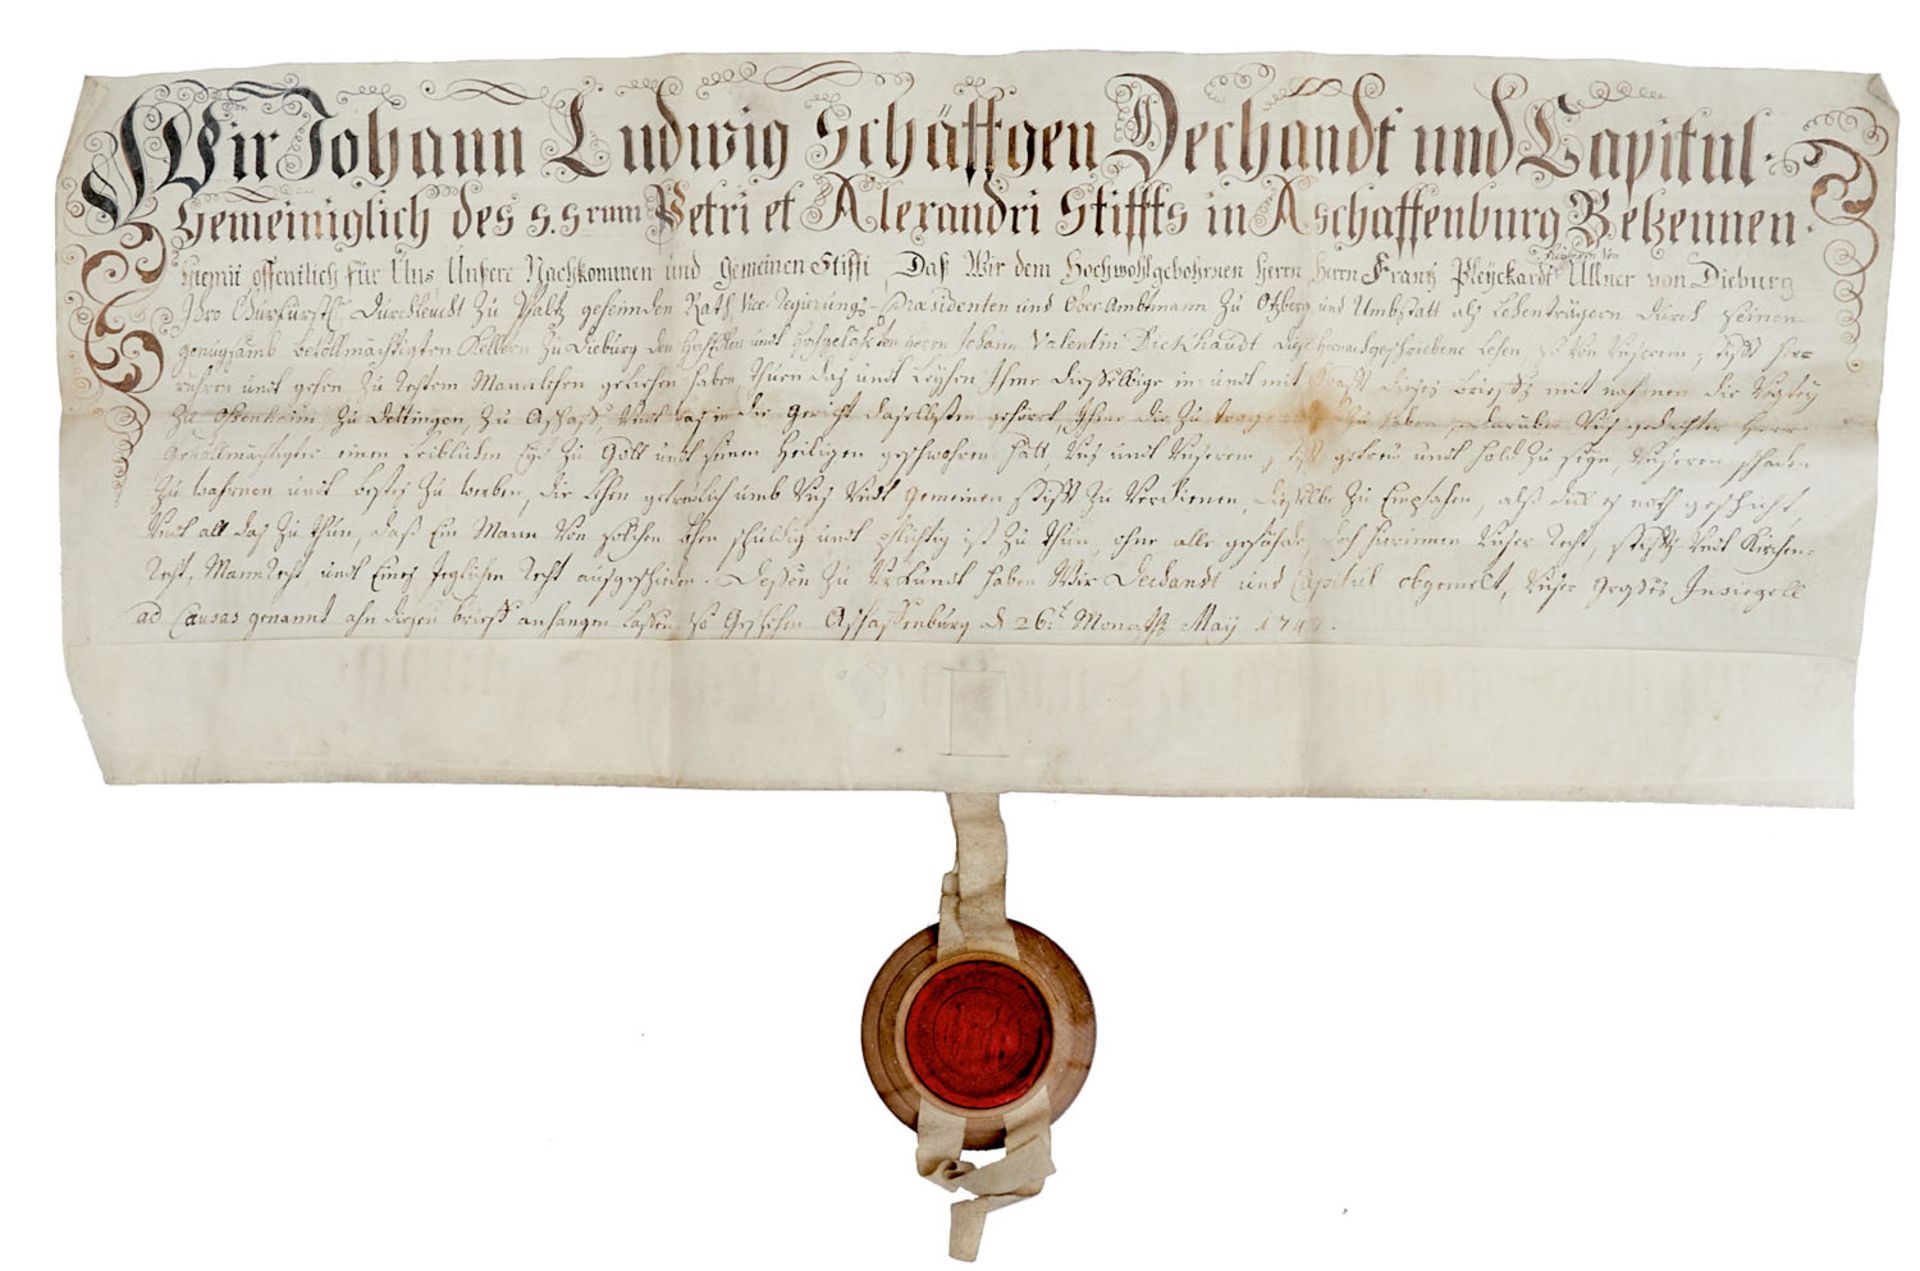 Wir Johann Ludwig Schäffgen Dechandt und Capitul
Gemeiniglich des S.Srum Petri et Alexandri Stiffts in Aschaffenburg Bekennen
Hiemit offentlich für Uns, Unsere Nachkommen und gemeinen Stifft, Daß Wir dem Hochwohlgebohrnen Herrn Herrn Frantz Pleyckardt Freyherrn von Ullner von Dieburg
Ihro Churfürstl. Durchleucht Zu Pfaltz geheimden Rath, Vice-Regierungs-Præsidenten und Ober Ambtmann Zu Otzberg und Umbstatt als Lehenträgern durch seinen
genugsamb bevollmächtigten Kellern Zu Dieburg den und Herrn Johann Valentin Dickhaudt diese hernachgeschriebene Lehen, so von Unserem Stifft her-
rühren undt gehen Zu rechtem Mannlehen geliehen haben, Thuen das undt Leyhen Ihme dieselbige in- undt mit Krafft dieses Brieffs mit nahmen die Vogtey
Zu Ossenheim, Zu Dettingen, Zu Aschaff, undt was in die Gericht daselbsten gehöret, Ihme die Zu tragen Zu haben, darüber Uns gedachter Herr
Gevollmächtigter einen Leiblichen Eyd Zu Gott undt seinen Heiligen geschwohren hatt, Uns undt Unserem Stifft getreu undt hold Zu seyn, Unseren schaden
Zu wahrnen undt bestes Zu werben, die Lehen getreulich umb Uns undt gemeinen Stifft Zu Verdienen, dieselbe Zu Empfahen, alß dick es noth geschicht,
Undt all das Zu thun, daß Ein Mann Von solchen Lehen schuldig undt pflichtig ist Zu thun, ohne alle gefährde, doch hierinnen Unser Recht, Stiffts- undt Kirchen-
recht, Mannrecht, undt Eines Jeglichen Recht ausgeschieden. Dessen Zu Urkundt haben Wir Dechandt und Capitul obgemelt, Unser Großes Insiegell
ad Causas genannt ahn diesen brieff anhangen lassen, so Geschehen Aschaffenburg d 26t Monaths May